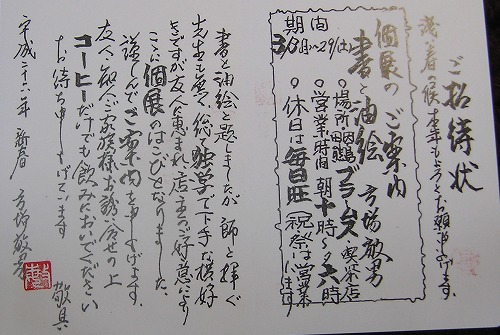 ご招待状
浅春の候 本年もよろしくお願い申し上げます。
個展のご案内
書と油絵 方場敏男
期間
3/3(月)〜29(土)
○場所 ブラームス・喫茶店
○営業時間 朝十時〜夕六時
○休日は毎日曜 祝祭は営業
書と油絵と題しましたが師と挥ぐ
先生も無く総て独学で下手な横好
きですが友人に恵まれ店主のご好意により
ここに個展のはこびとなりました。
謹しんでご案内を申し上げます。
友人・知人・ご家族様お誘い合せの上
コーヒーだけでも飲みにおいでください
お待ち申し上げています
敬具
平成二十六年 新春 方場敏男